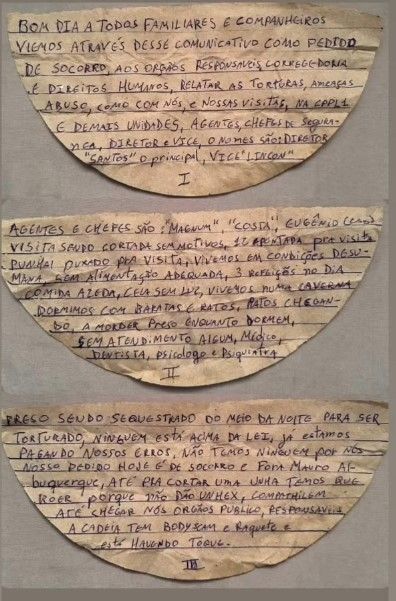 BOM DIA A TODAS FAMILIARES E COMPANHEIROS
VIEMOS ATRAVÉS DESSE COMUNICATIVO COMO PEDIDO
DE SOCORRO, AOS ORGÃOS RESPONSAVEIS, CORREGEDORIA
E DIREITOS HUMANOS, RELATAR AS TORTURAS, AMEAÇAS
ABUSO, COMO COM NÓS, E NOSSAS VISITAS, NA CPPL1
E DEMAIS UNIDADES, AGENTES, CHEFES DE SEGURA-
NÇA, DIRETOR E VICE, O NOMES SÃO: DIRETOR
"SANTOS" O PRINCIPAL, VICE "LINCON"
I
AGENTES E CHEFES SÃO: "MAGNUM", "COSTA", EUGÊNIO
VISITA SENDO CORTADA SEM MOTIVOS, PRA VISITA
PRA VISITA, VIVEMOS EM CONDIÇÕES DESU-
MANA, SEM ALIMENTAÇÃO ADEQUADA, 3 REFEIÇÕES NO DIA
COMIDA AZEDA, CELA SEM LUZ, VIVEMOS NUMA CAVERNA
DORMIMOS COM BARATAS E RATOS, RATOS CHEGAN-
DO, A MORDER PRESO ENQUANTO DORMEM,
SEM ATENDIMENTO ALGUM, MÉDICO,
DENTISTA, PSICOLOGO E PSIQUIATRA
II
PRESO SENDO SEQUESTRADO DO MEIO DA NOITE PARA SER
TORTURADO, NINGUEM ESTÁ ACIMA DA LEI, JÁ ESTAMOS
PAGANDO NOSSOS ERROS, NÃO TEMOS NINGUEM POR NÓS
NOSSO PEDIDO HOJE É DE SOCORRO E FORA MAURO AL-
BUQUERQUE, ATÉ PRA CORTAR UMA UNHA TEMOS QUE
ROER PORQUE NÃO DÃO UNHEX, COMPATHILEM
ATÉ CHEGAR NÓS ORGÃOS PUBLICO, RESPONSAVEIS
A CADEIA TEM BODYSCAM E RAQUETE E
ESTÁ HAVENDO TOQUE.
III